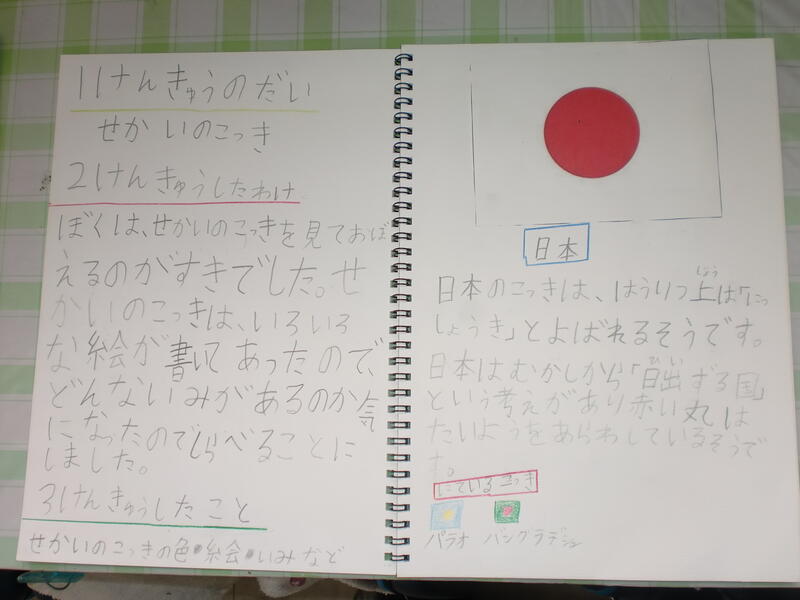 1けんきゅうのだい
せかいのこっき
2けんきゅうしたわけ
ぼくは、せかいのこっきを見ておぼ
えるのがすきでした。せ
かいのこっきは、いろいろ
な絵が書いてあったので、
どんないみがあるのか気
になったのでしらべることに
しました。
3けんきゅうしたこと
せかいのこっきの色・絵・いみなど
日本
しょう
日本のこっきは、ほうりつ上は「にっ
しょうき」とよばれるそうです。
ひ い
日本はむかしから「日出ずる国」
という考えがあり赤い丸は
たいようをあらわしているそうで
す。
にているこっき
パラオ バングラデシュ